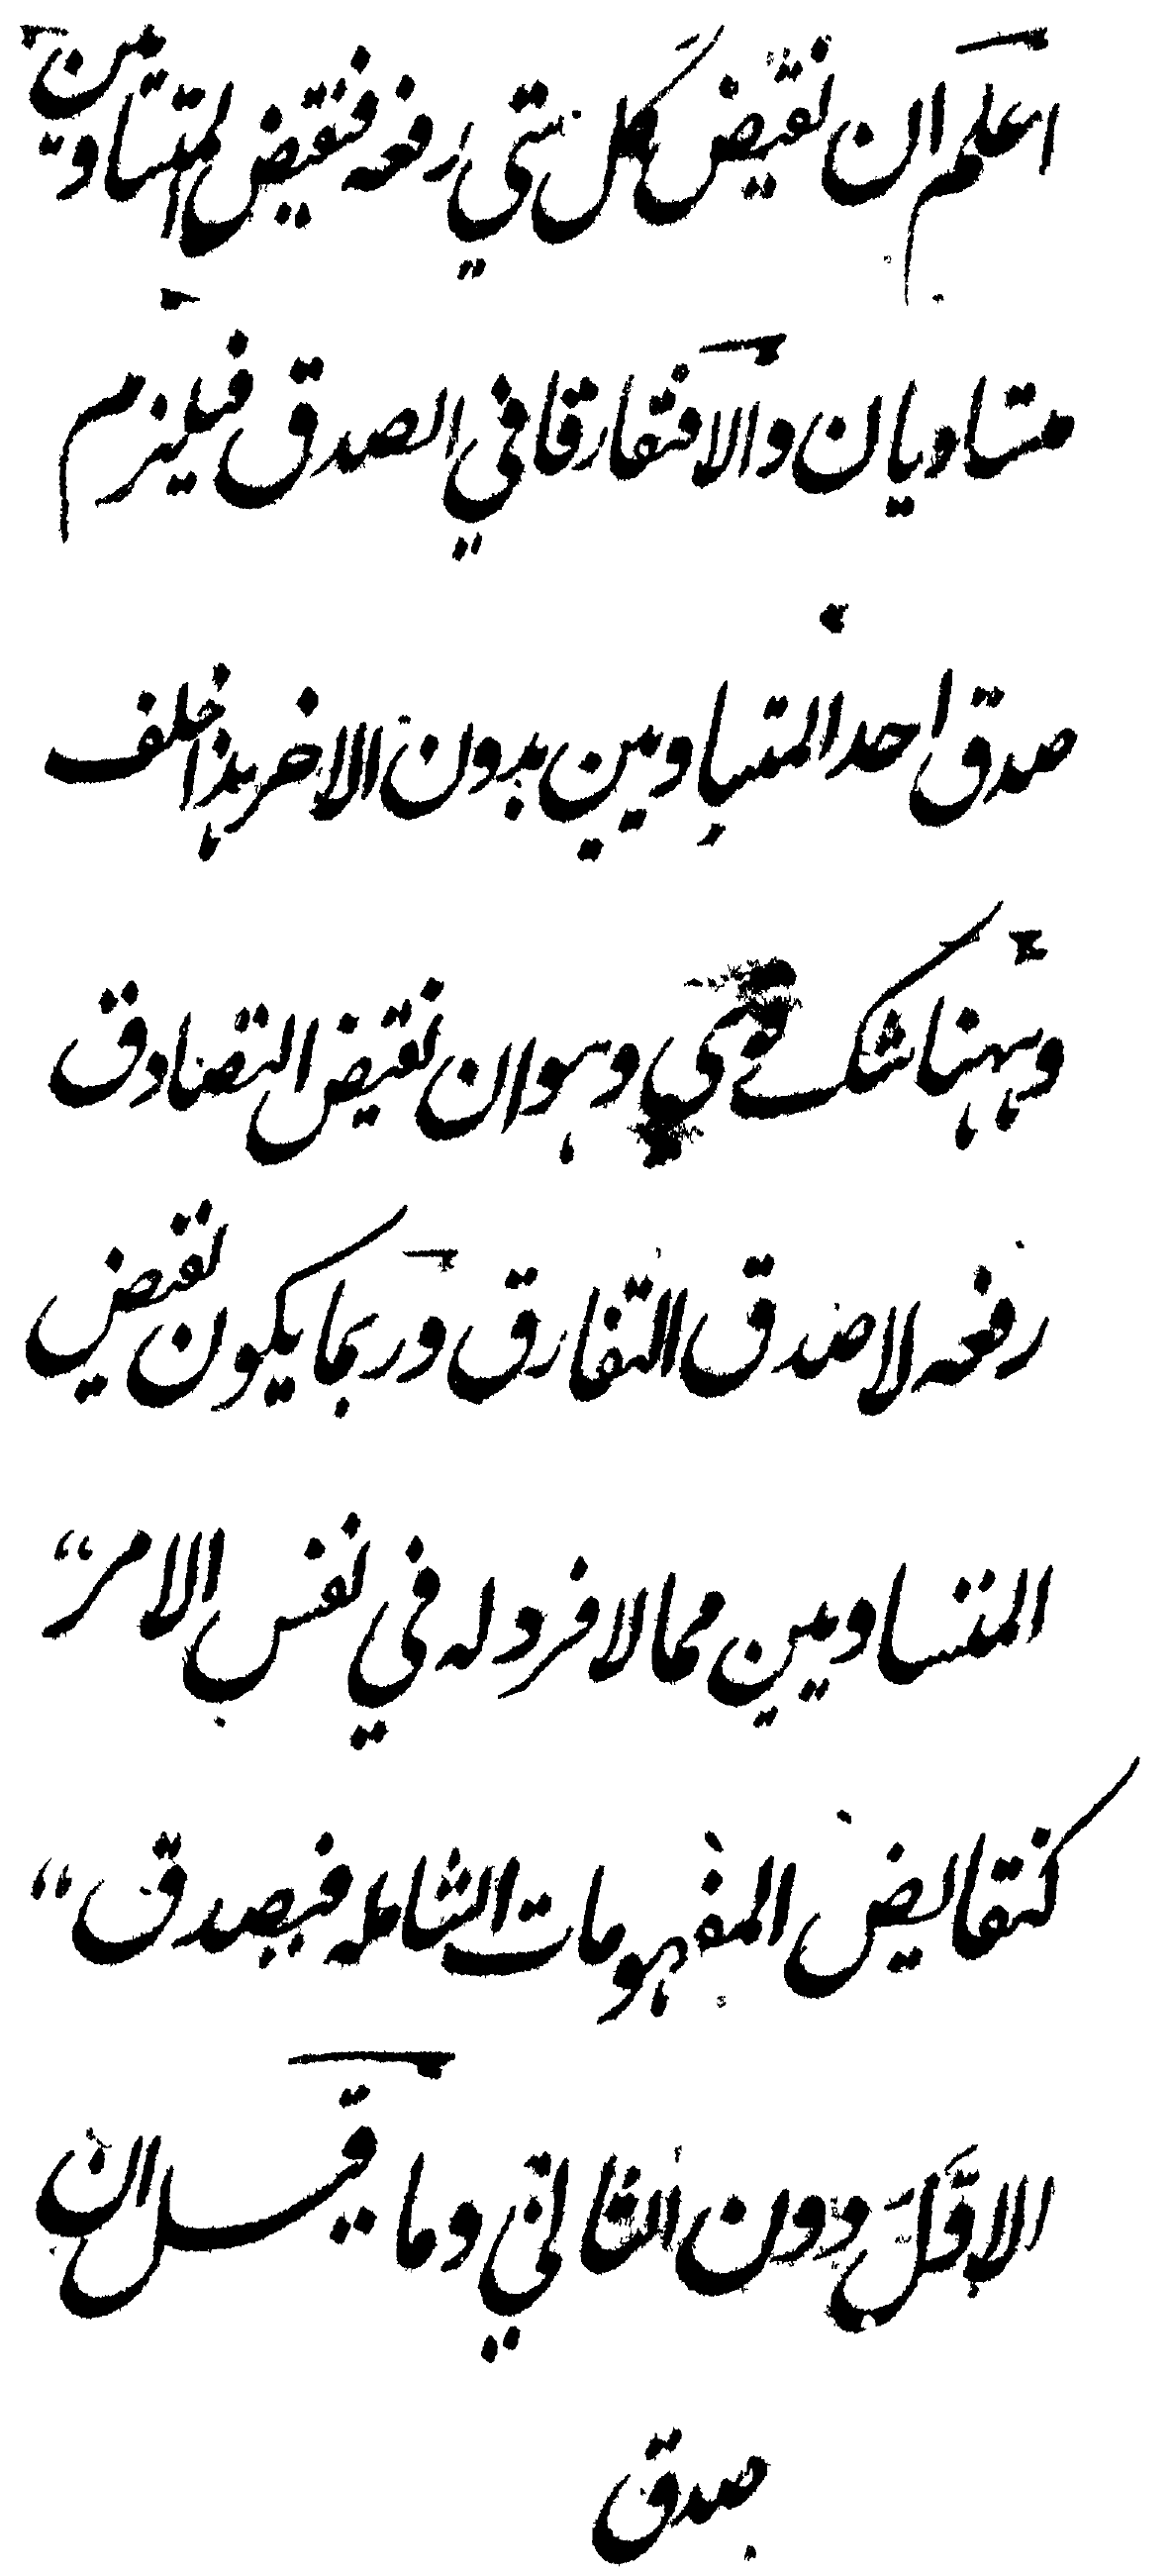 اعلم ان نقيض كل شي رفعه فنقيض المتساويين
متساويان والا فتفارقا في الصدق فيلزم
صدق احد المتساويين بدون الاخر هذا خلف
وههنا شك قوي وهو ان نقيض التصادق
رفعه لا صدق التفارق وربما يكون نقيض
المتساويين مما لا فرد له في نفس الامر“
كنقايض المفهومات الشامله فيصدق “
الاوّل دون الثاني وما قيل ان
صدق